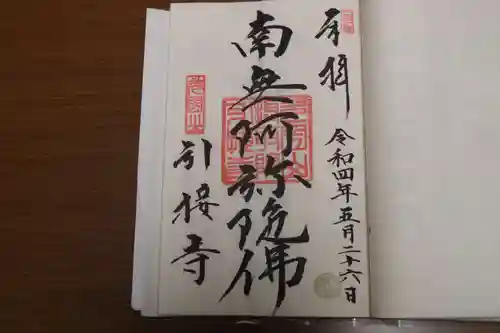 奉拝
令和四年五月二十六日
南無阿弥陀佛
引接寺